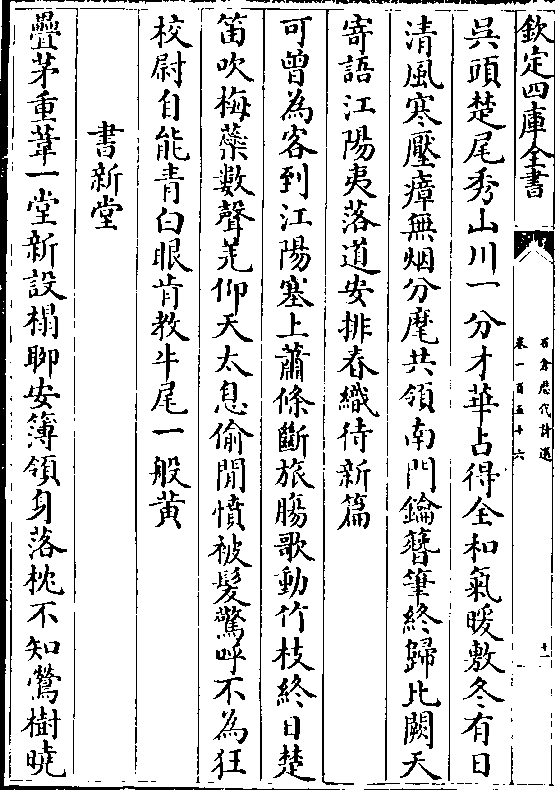 欽定四庫全書
石倉歷代詩選
卷一百五十六
十一
吳頭楚尾秀山川一分才華占得全和氣暖敷冬有日
清風寒壓瘴無烟分麾共領南門鑰簪筆終歸北闕天
寄語江陽夷落道安排春織待新篇
可曾為客到江陽塞上蕭條斷旅腸歌動竹枝終日楚
笛吹梅蘂數聲羌仰天太息偷閒憤被髮驚呼不為狂
校尉自能青白眼肯教牛尾一般黄
書新堂
疊茅重葦一堂新設榻聊安簿領身落枕不知鶯樹曉